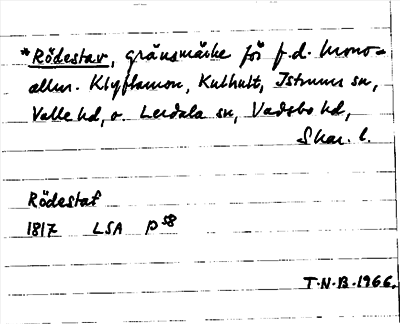 *Rödestav, gränsmärke för f.d. krono=
allm. Klyftamon, Kulhult, Istrums sn,
Valle hd, o. Lerdala sn, Vadsbo hd,
Skar. l.
Rödestaf
1817 LSA P58
T.N.B.1966.